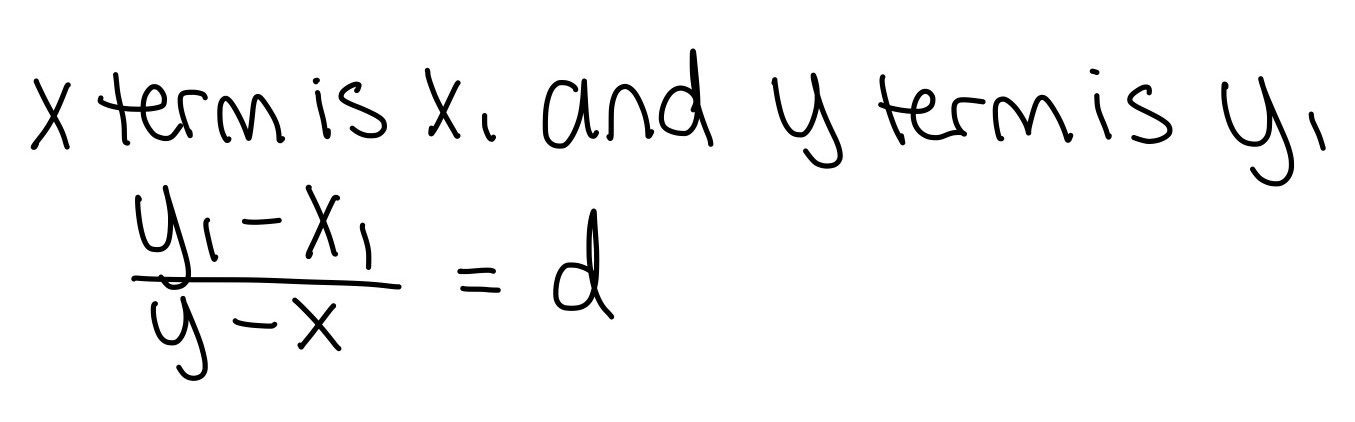 x term is x₁ and y term is y₁
(y₁ - x₁)/(y - x) = d